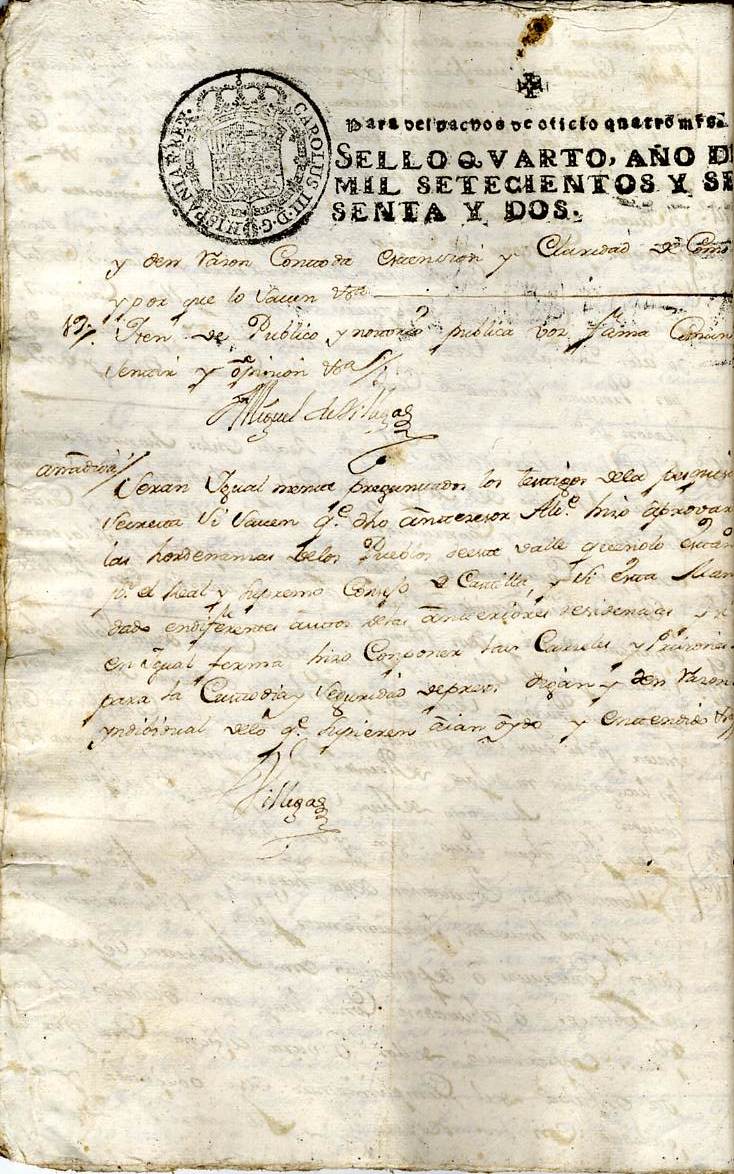 CAROLUS III·D·G·HISPANIAR·REX·
Para despachos de oficio quatro mrs.
SELLO QVARTO, AÑO DE
MIL SETECIENTOS Y SE
SENTA Y DOS.
y den razon Con toda extension y Claridad de Como
y por que lo saven
19. Iten de Publico y notorio publica voz fama Comun
sentir y opinion
Miguel de Villegas
añadida
Seran Igual mente preguntados los testigos dela pesquisa
secreta si saven q.e dho antecesor hizo aprovar
las hordenanzas delos Pueblos deeste valle que nolo estan
p.r el Real y Supremo Consejo de Castilla, y si esta Man
dado endiferentes autos delas anteriores residencias
en Igual forma hizo Componer las Carzeles y Prisiones
para la Custodia y Seguridad depresos digan y den razon
yndividual delo q.e supieren aian oydo y entendido
Villegas